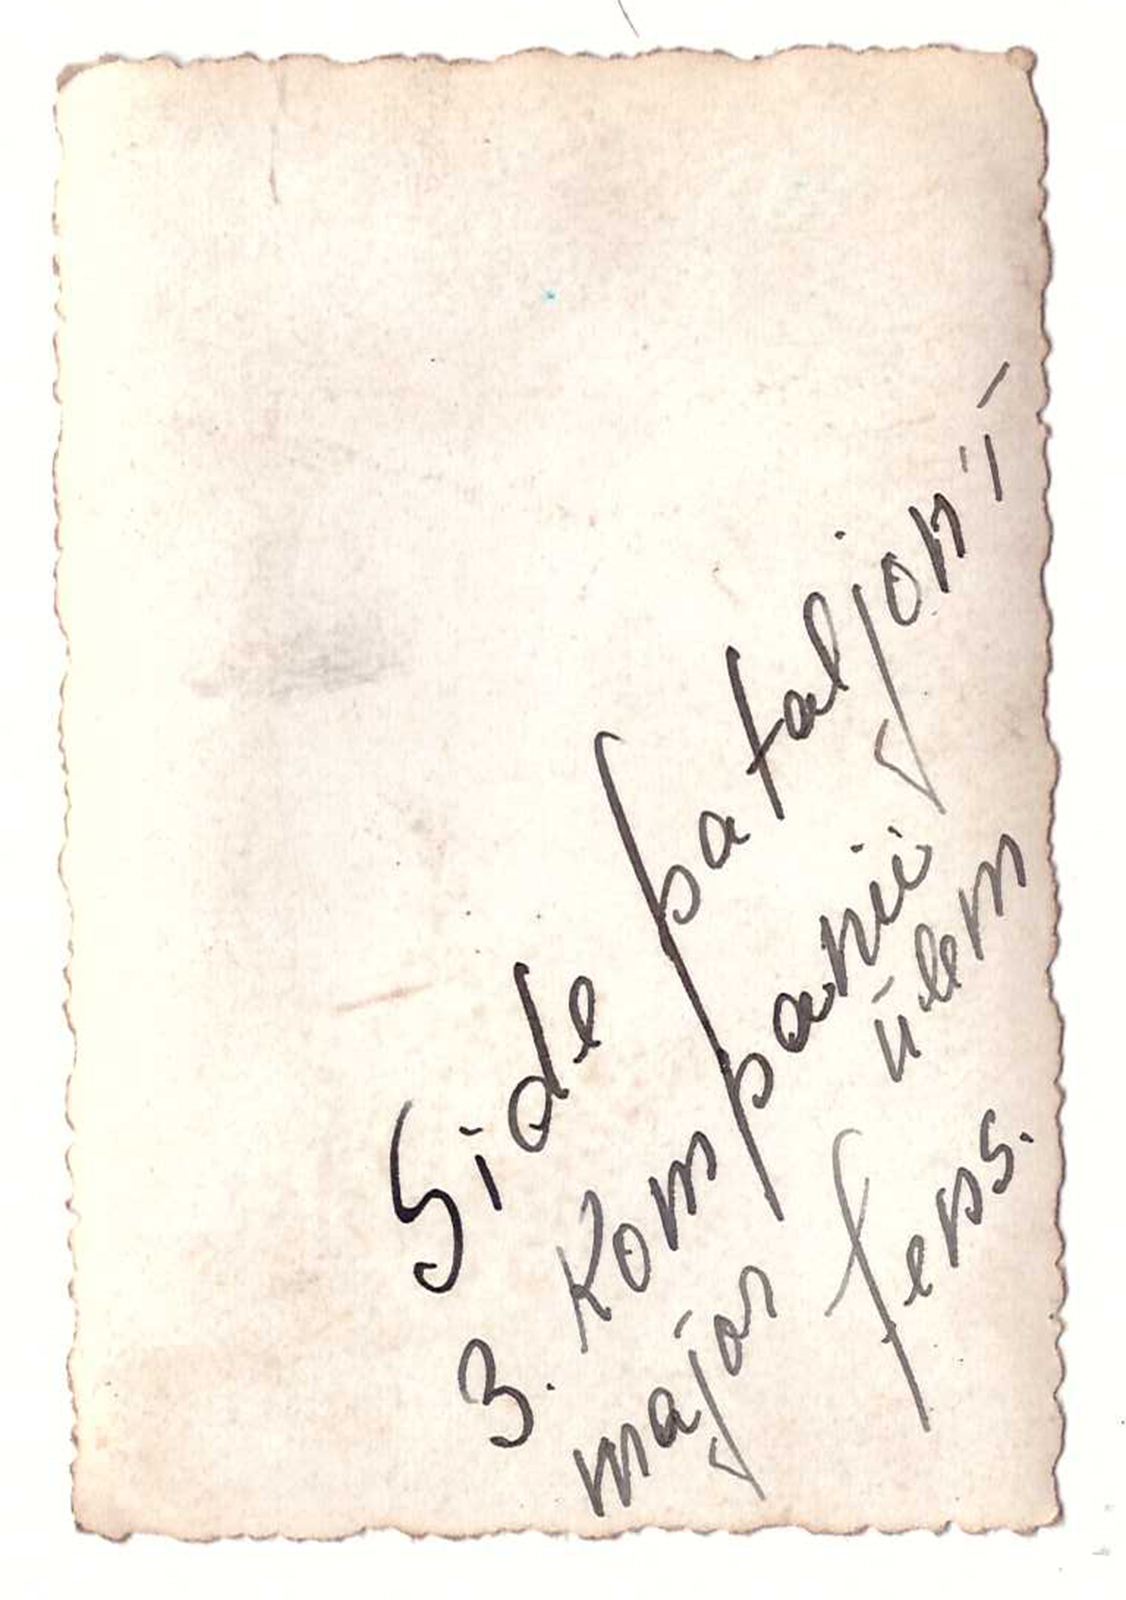 Side pataljoni
3. Kompanii ülem
major Fens.